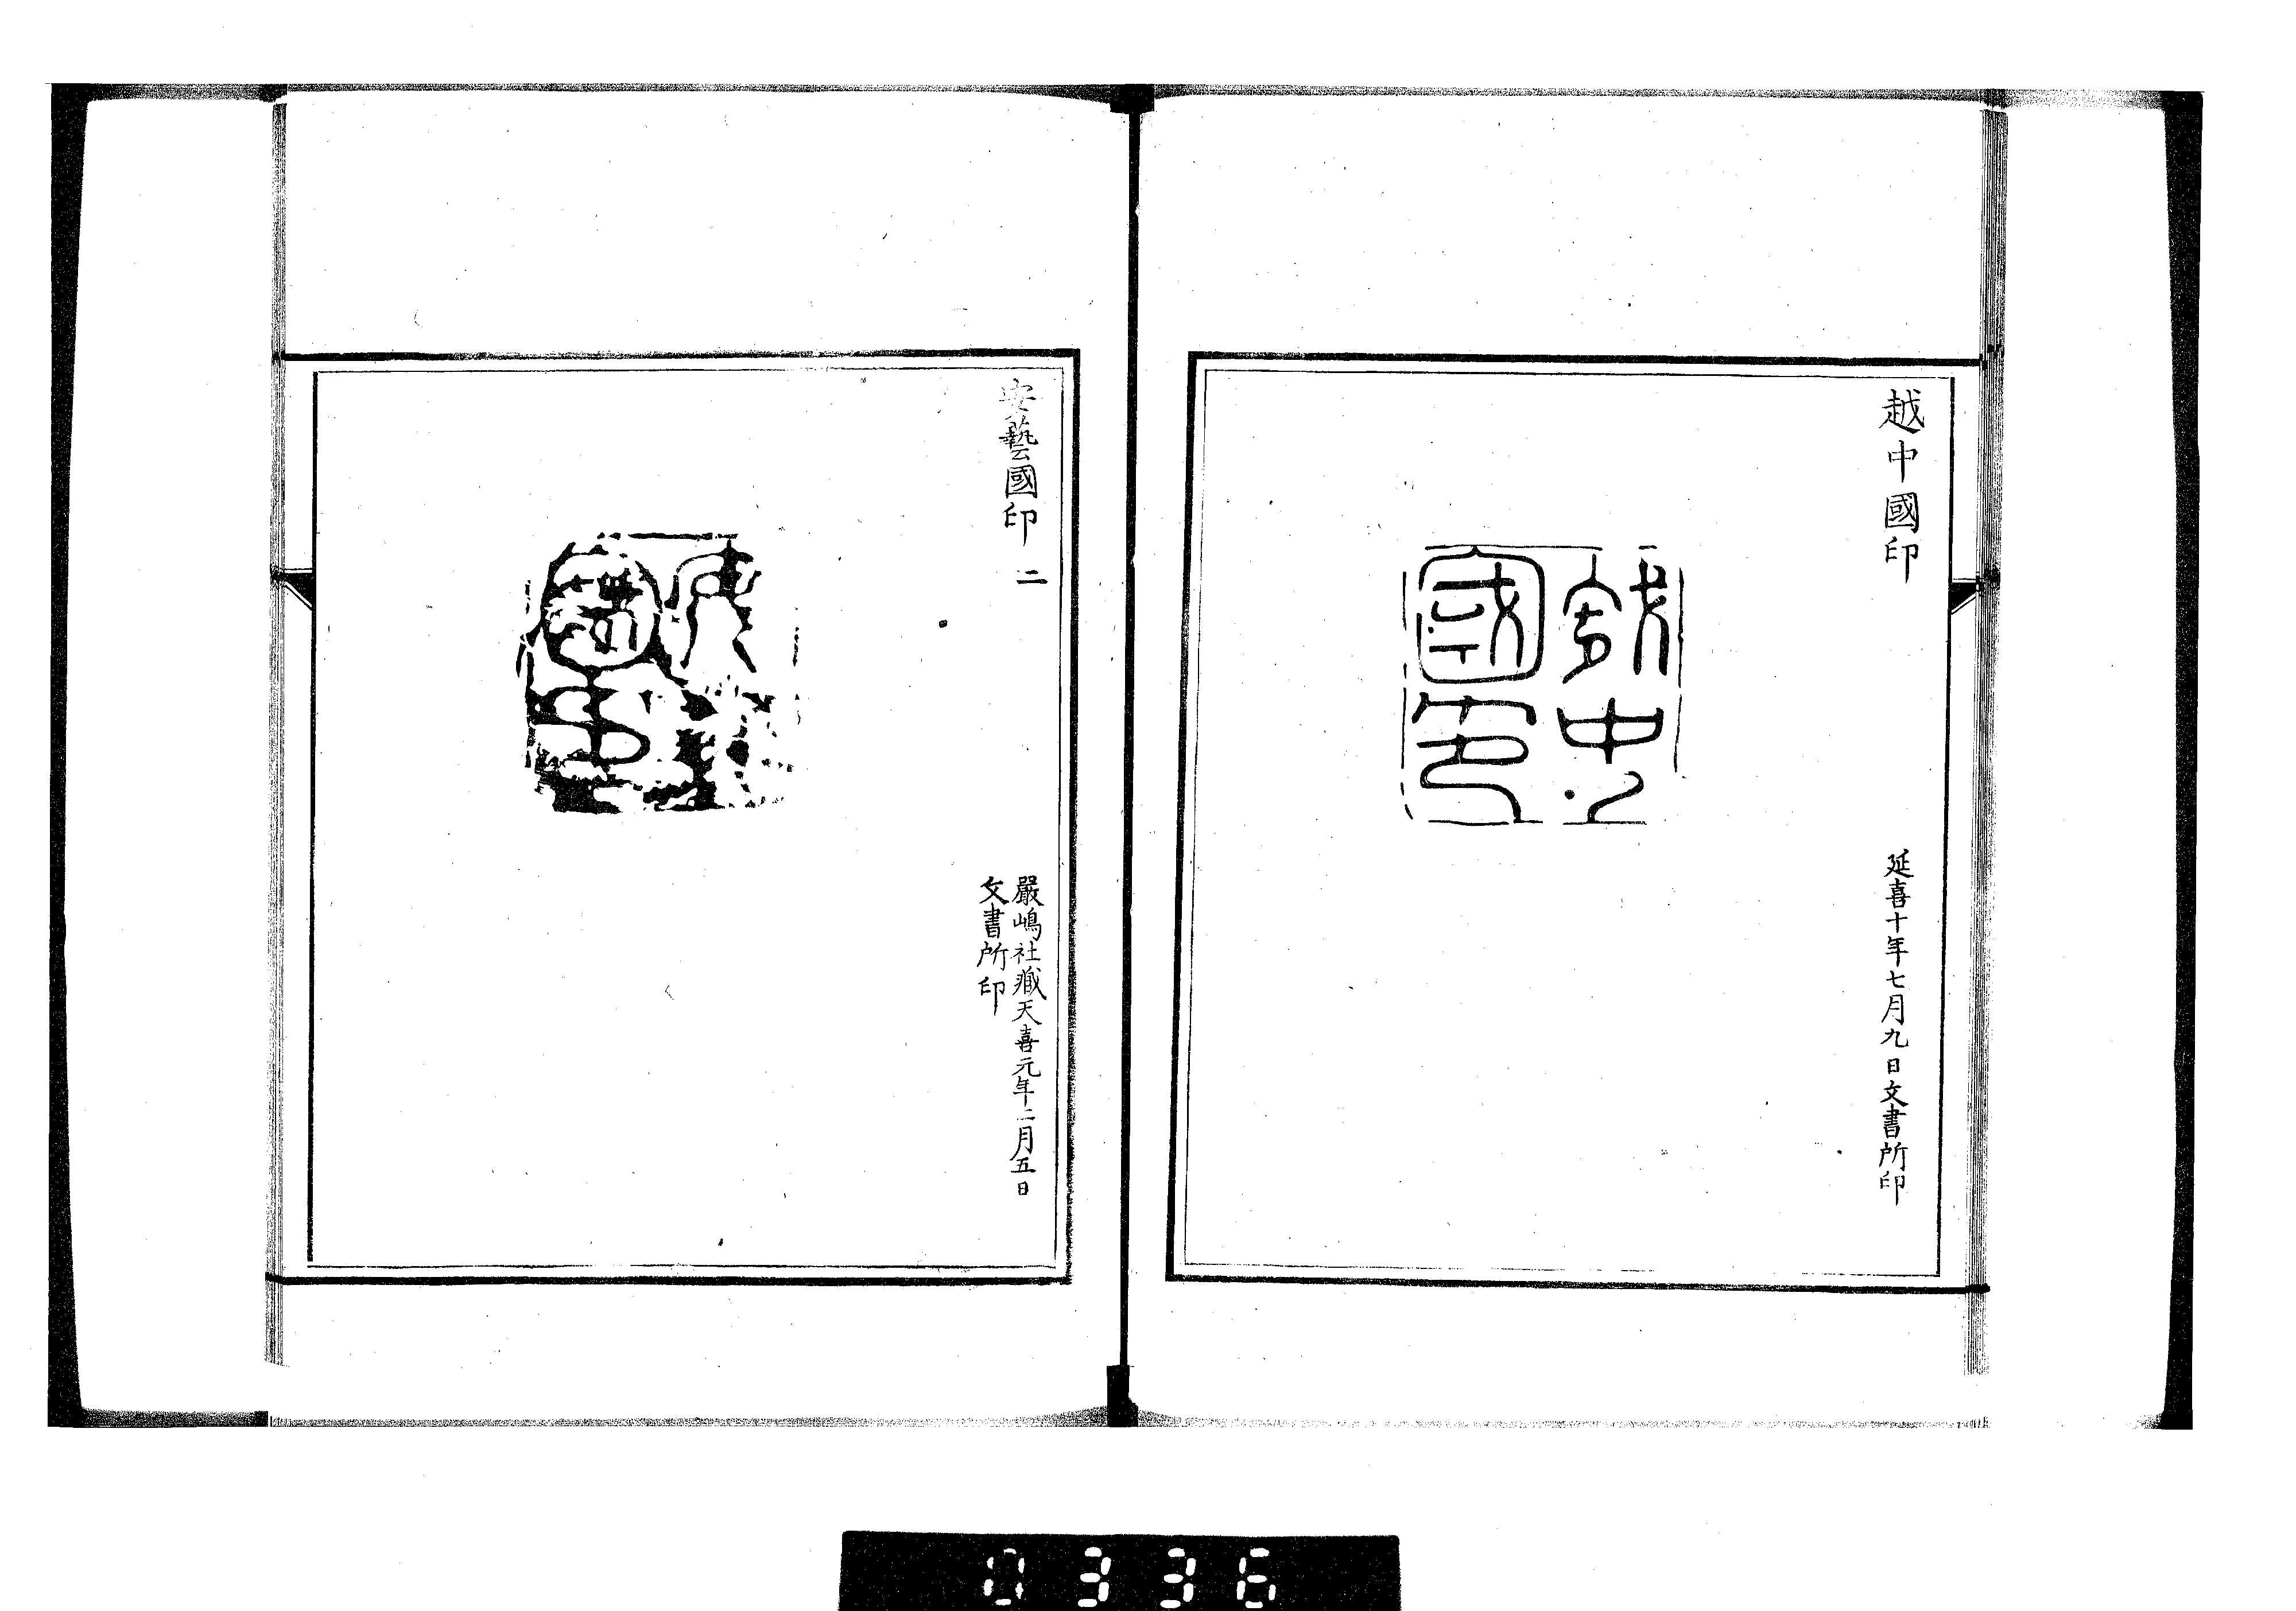 越中國印
延喜十年七月九日文書所印
越中國印
安藝國印 二
嚴嶋社藏天喜元年二月五日
文書所印
0336